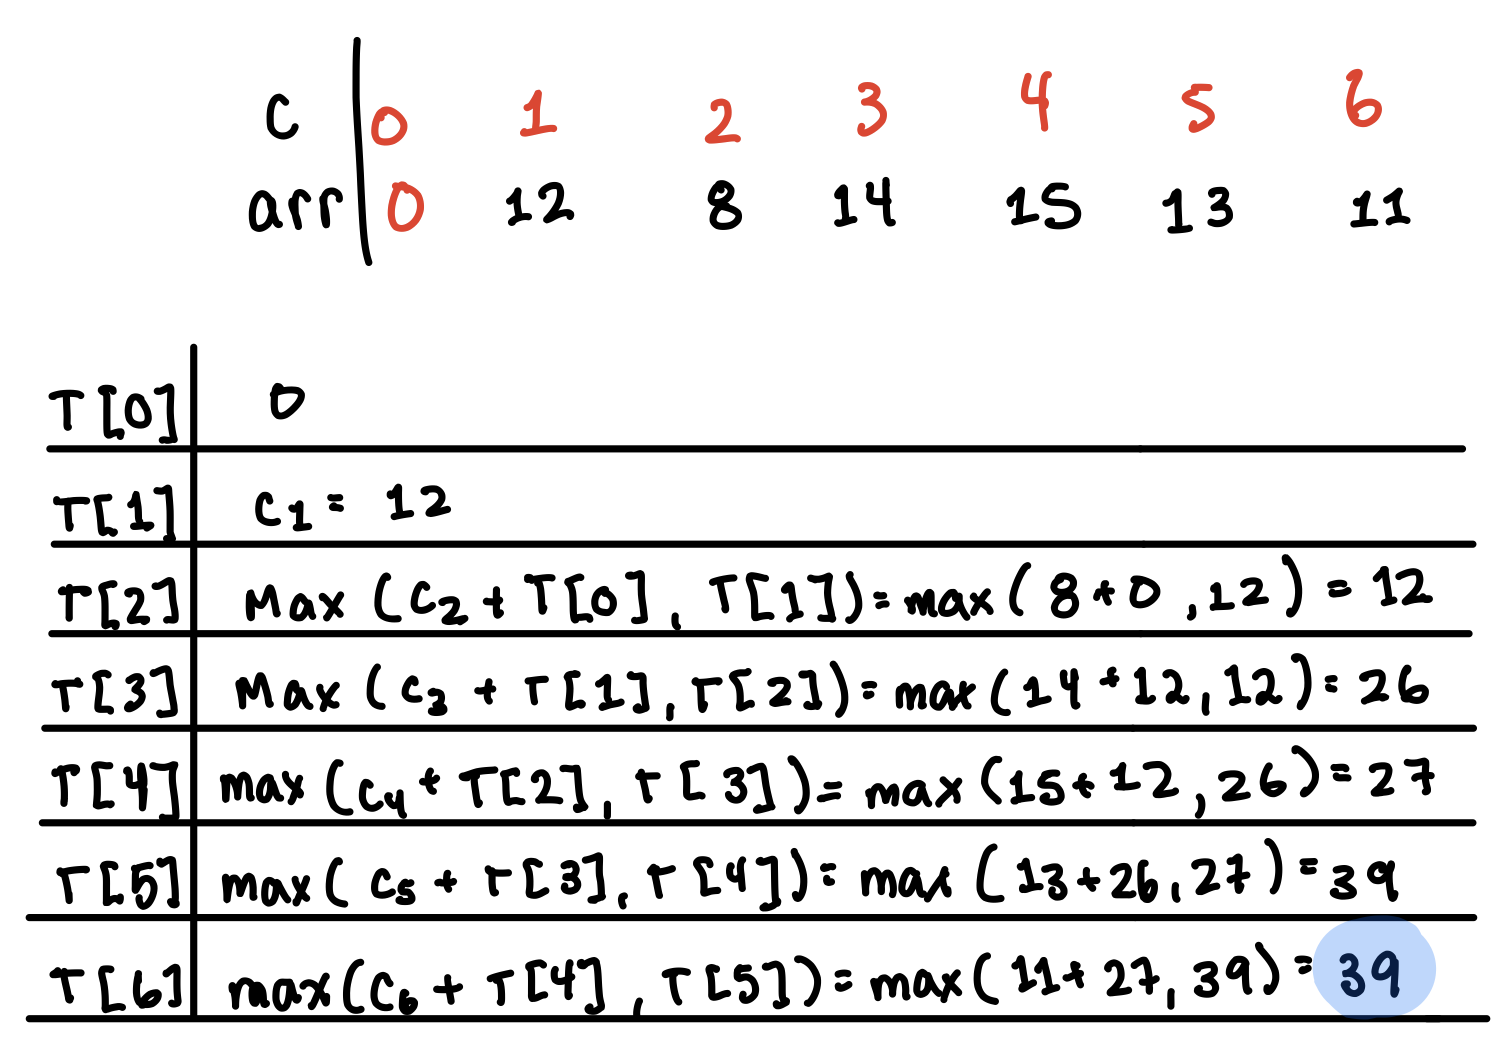 C 0 1 2 3 4 5 6
arr 0 12 8 14 15 13 11
T[0] 0
T[1] C₁ = 12
T[2] Max (C₂ + T[0], T[1]) = max(8+0,12) = 12
T[3] Max (C₃ + T[1], T[2]) = max(14+12,12) = 26
T[4] max (C₄ + T[2], T[3]) = max (15+12,26) = 27
T[5] max( C₅ + T[3], T[4]) = max (13+26,27) = 39
T[6] max(C₆ + T[4], T[5]) = max( 11+27,39) = 39